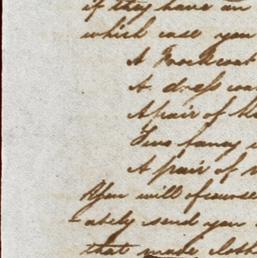 if they have an
which case you
A Frockcoat
A dress coa
A pair of
Two fancy
A pair of
You will of course
-ately send you
that made cloth